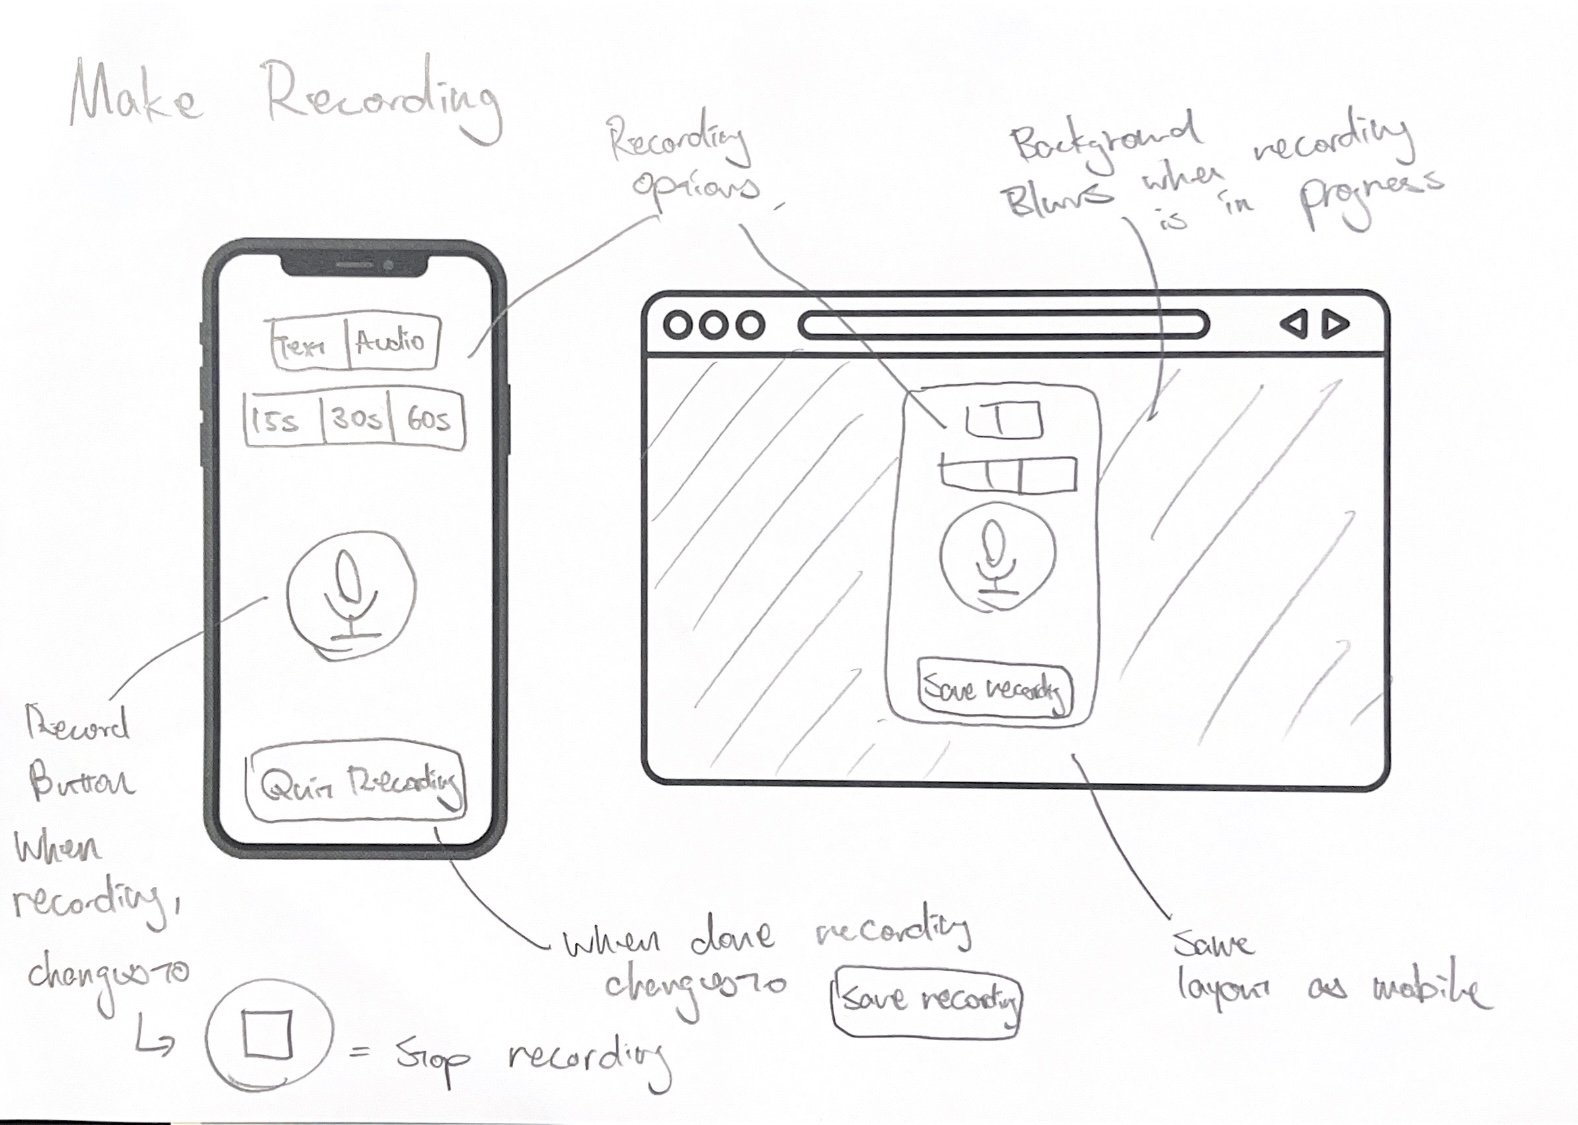 Make Recording
Recording
options
Background
Blurs when recording
is in progress
Text Audio
15s 30s 60s
Quit Recording
Save recording
Record
Button
When
recording,
changes to
= Stop recording
When done recording
changes to
Save recording
Same
layout as mobile